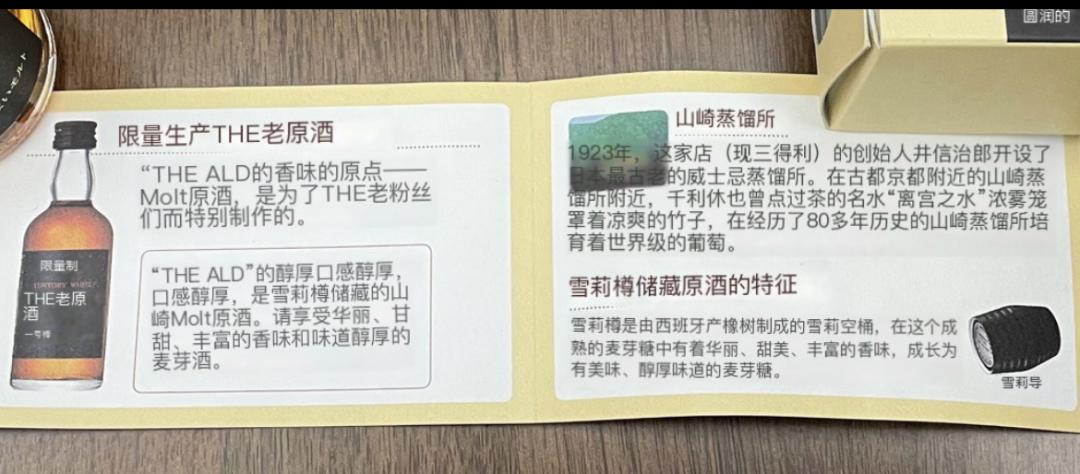 圆润的
いモルト
限量生产THE老原酒
“THE ALD的香味的原点——
Molt原酒，是为了THE老粉丝
们而特别制作的。
限量制
SUNTORY WHISKY
THE老原
酒
一号樽
“THE ALD”的醇厚口感醇厚，
口感醇厚，是雪莉樽储藏的山
崎Molt原酒。请享受华丽、甘
甜、丰富的香味和味道醇厚的
麦芽酒。
山崎蒸馏所
1923年，这家店（现三得利）的创始人井信治郎开设了
日本最古老的威士忌蒸馏所。在古都京都附近的山崎蒸
馏所附近，千利休也曾点过茶的名水“离宫之水”浓雾笼
罩着凉爽的竹子，在经历了80多年历史的山崎蒸馏所培
育着世界级的葡萄。
雪莉樽储藏原酒的特征
雪莉樽是由西班牙产橡树制成的雪莉空桶，在这个成
熟的麦芽糖中有着华丽、甜美、丰富的香味，成长为
有美味、醇厚味道的麦芽糖。
雪莉导